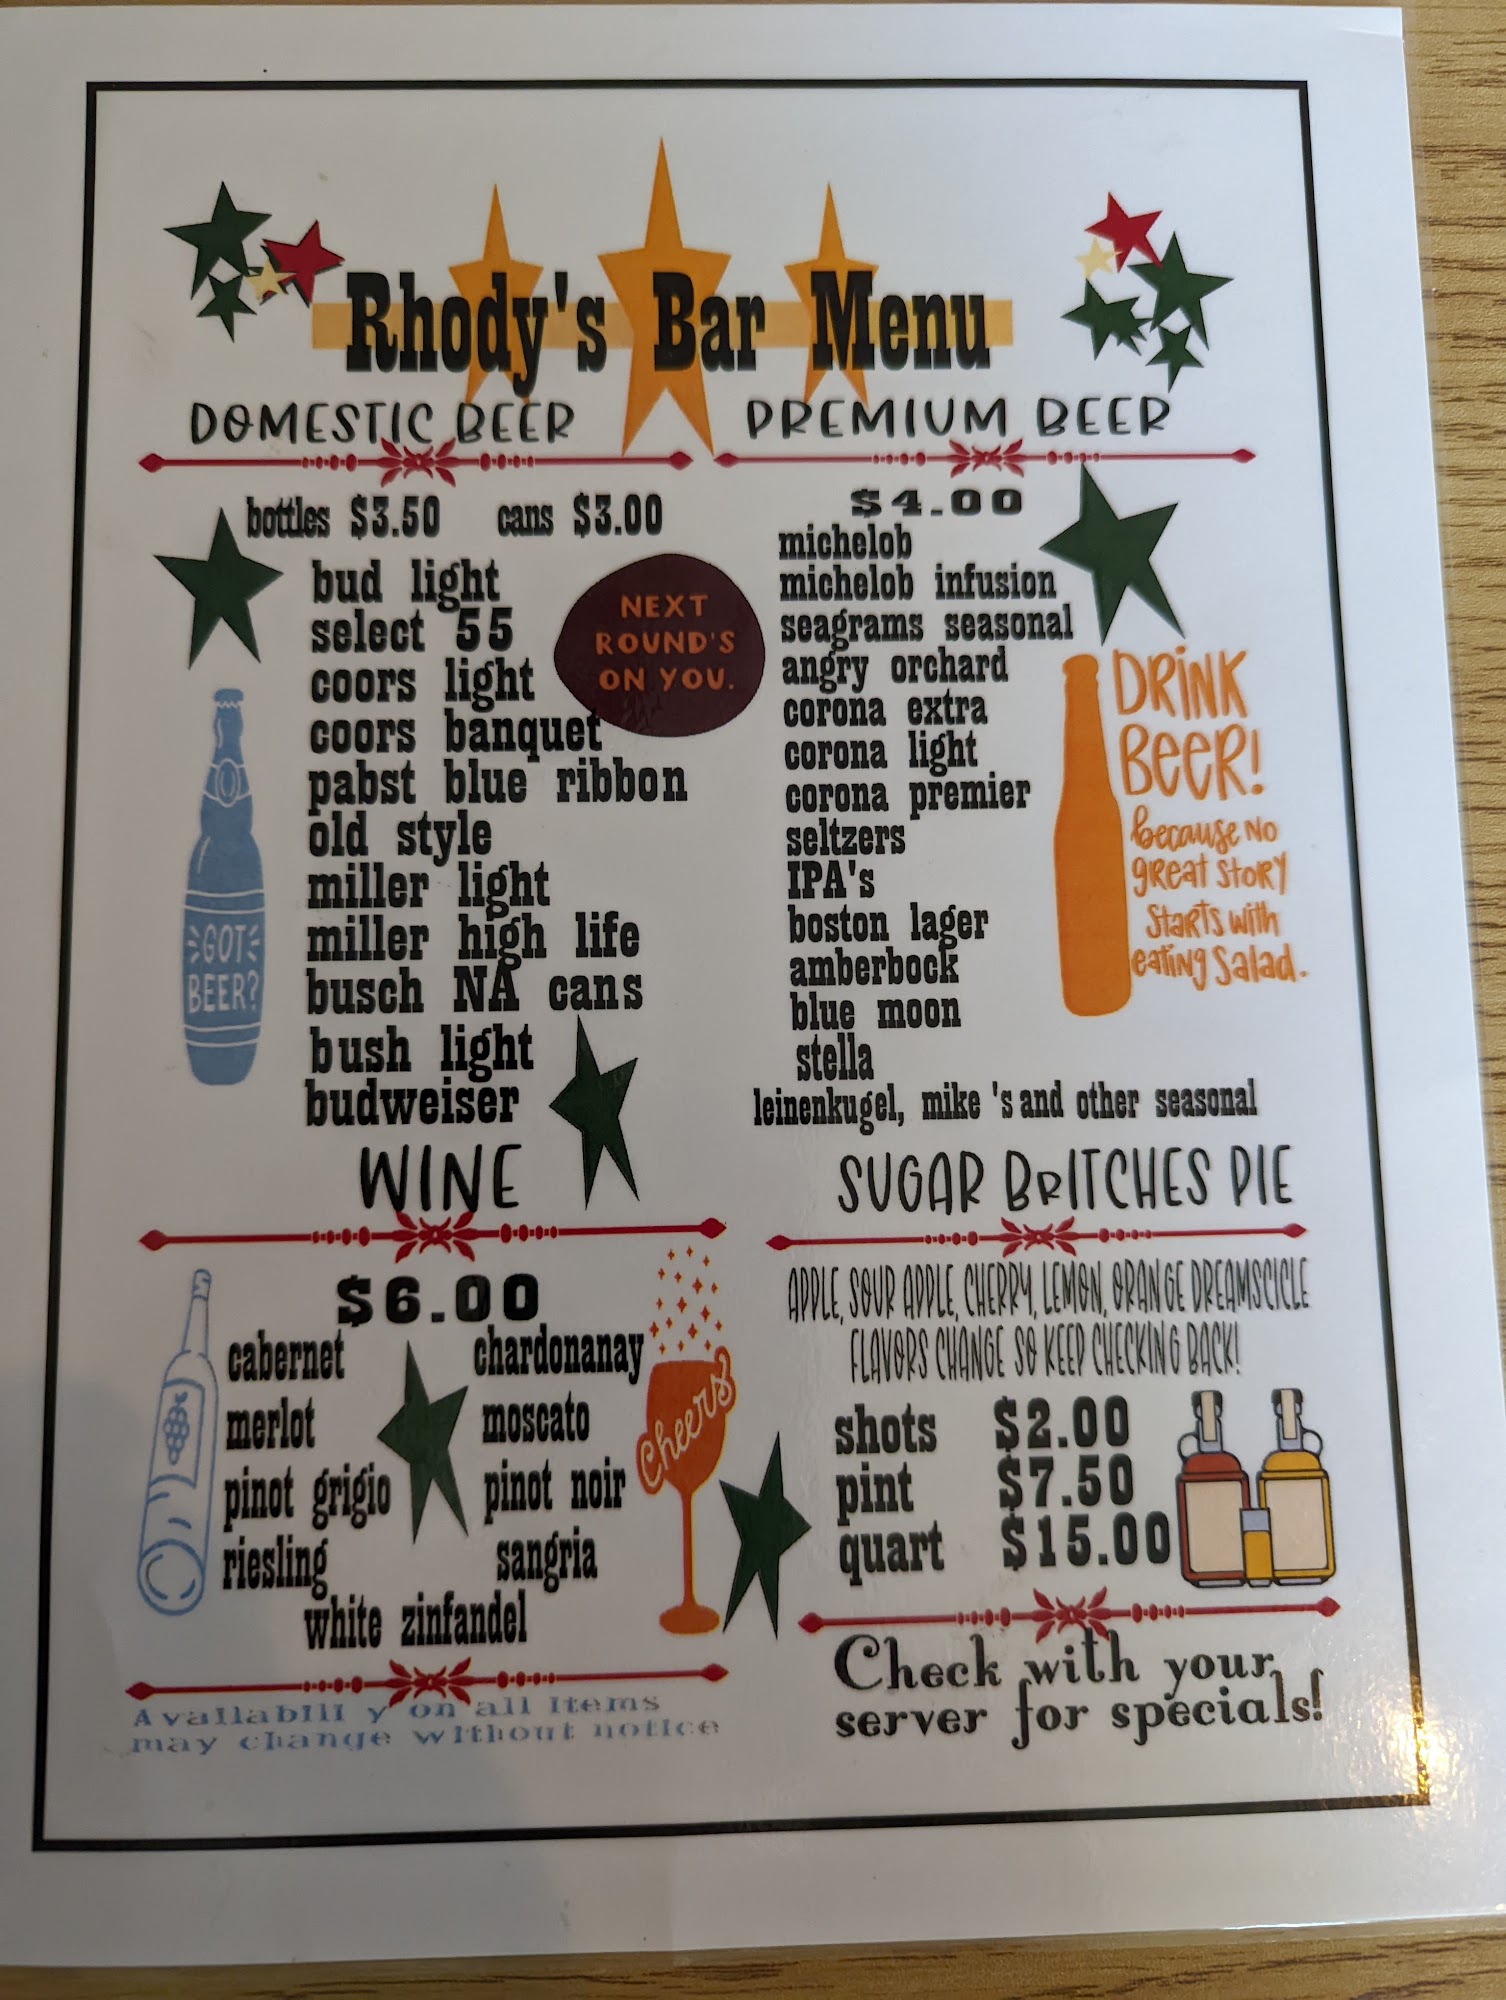 Rhody's Bar Menu
DOMESTIC BEER
bottles $3.50 cans $3.00
bud light
select 55
coors light
coors banquet
pabst blue ribbon
old style
miller light
miller high life
busch NA cans
bush light
budweiser
NEXT
ROUND'S
ON YOU.
GOT
BEER?
PREMIUM BEER
$4.00
michelob
michelob infusion
seagrams seasonal
angry orchard
corona extra
corona light
corona premier
seltzers
IPA's
boston lager
amberbock
blue moon
stella
leinenkugel, mike 's and other seasonal
DRINK
BEER!
because NO
great STORY
STARTS WITH
eating Salad.
WINE
$6.00
cabernet chardonanay
merlot moscato
pinot grigio pinot noir
riesling sangria
white zinfandel
Cheers
Availabili y on all items
may change without notice
SUGAR BRITCHES PIE
APPLE, SOUR APPLE, CHERRY, LEMON, ORANGE DREAMSCICLE
FLAVORS CHANGE SO KEEP CHECKING BACK!
shots $2.00
pint $7.50
quart $15.00
Check with your
server for specials!